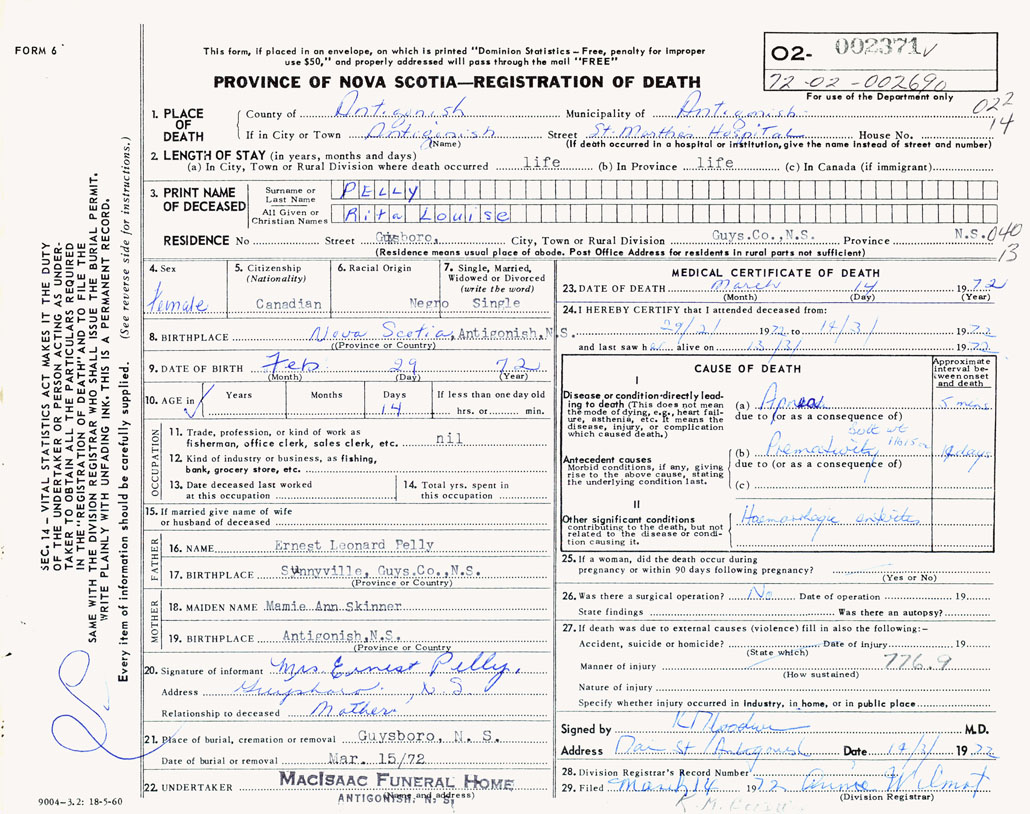 FORM 6
This form, if placed in an envelope, on which is printed "Dominion Statistics – Free, penalty for improper
use $50," and properly addressed will pass through the mail "FREE"
PROVINCE OF NOVA SCOTIA—REGISTRATION OF DEATH
O2- 002371
72-02-002690
For use of the Department only
022
14
SEC. 14 – VITAL STATISTICS ACT MAKES IT THE DUTY
OF THE UNDERTAKER OR PERSON ACTING AS UNDER-
TAKER TO OBTAIN ALL THE PARTICULARS REQUIRED
IN THE "REGISTRATION OF DEATH" AND TO FILE THE
SAME WITH THE DIVISION REGISTRAR WHO SHALL ISSUE THE BURIAL PERMIT.
WRITE PLAINLY WITH UNFADING INK. THIS IS A PERMANENT RECORD.
Every item of information should be carefully supplied. (See reverse side for instructions.)
1. PLACE OF DEATH
County of Antigonish Municipality of Antigonish
If in City or Town Antigonish Street St. Martha's Hospital House No.
(Name) (If death occurred in a hospital or institution, give the name instead of street and number)
2. LENGTH OF STAY (in years, months and days)
(a) In City, Town or Rural Division where death occurred life (b) In Province life (c) In Canada (if immigrant)
3. PRINT NAME OF DECEASED
Surname or Last Name PELLY
All Given or Christian Names Rita Louise
RESIDENCE No Street Guysboro, City, Town or Rural Division Guys.Co.,N.S. Province N.S. 040
13
(Residence means usual place of abode. Post Office Address for residents in rural parts not sufficient)
4. Sex
Female
5. Citizenship
(Nationality)
Canadian
6. Racial Origin
Negro
7. Single, Married,
Widowed or Divorced
(write the word)
Single
8. BIRTHPLACE Nova Scotia, Antigonish, N.S.
(Province or Country)
9. DATE OF BIRTH Feb 29 72
(Month) (Day) (Year)
10. AGE in Years Months Days If less than one day old
14 hrs. or min.
OCCUPATION
11. Trade, profession, or kind of work as
fisherman, office clerk, sales clerk, etc. nil
12. Kind of industry or business, as fishing,
bank, grocery store, etc.
13. Date deceased last worked
at this occupation
14. Total yrs. spent in
this occupation
15. If married give name of wife
or husband of deceased
FATHER
16. NAME Ernest Leonard Pelly
17. BIRTHPLACE Sunnyville, Guys.Co.,N.S.
(Province or Country)
MOTHER
18. MAIDEN NAME Mamie Ann Skinner
19. BIRTHPLACE Antigonish,N.S.
(Province or Country
20. Signature of informant Mrs Ernest Pelly.
Address Guysboro, N S
Relationship to deceased Mother
21. Place of burial, cremation or removal Guysboro, N. S.
Date of burial or removal Mar. 15/72
22. UNDERTAKER MacIsaac Funeral Home
(Name and address)
ANTIGONISH, N. S.
9004–3.2: 18-5-60
MEDICAL CERTIFICATE OF DEATH
23. DATE OF DEATH March 14 1972
(Month) (Day) (Year)
24. I HEREBY CERTIFY that I attended deceased from:
29/2/ 1972 to 14/3/ 1972
and last saw her alive on 13/3/ 1972
CAUSE OF DEATH
Approximate
interval be-
tween onset
and death
I
Disease or condition directly lead-
ing to death (This does not mean
the mode of dying, e.g., heart fail-
ure, asthenia, etc. It means the
disease, injury, or complication
which caused death.)
(a) Apnea 5 mins
due to (or as a consequence of)
Birth wt
Antecedent causes
Morbid conditions, if any, giving
rise to the above cause, stating
the underlying condition last.
(b) Prematurity 14 days
due to (or as a consequence of)
(c)
II
Other significant conditions
contributing to the death, but not
related to the disease or condi-
tion causing it.
Haemorrhagic enteritis
25. If a woman, did the death occur during
pregnancy or within 90 days following pregnancy?
(Yes or No)
26. Was there a surgical operation? No Date of operation 19
State findings Was there an autopsy?
27. If death was due to external causes (violence) fill in also the following:–
Accident, suicide or homicide? Date of injury 19
(State which)
Manner of injury 776.9
(How sustained)
Nature of injury
Specify whether injury occurred in industry, in home, or in public place
Signed by M.D.
Address Main St Antigonish Date 14/3/ 1972
28. Division Registrar's Record Number
29. Filed March 14 1972 Wilmot
(Division Registrar)